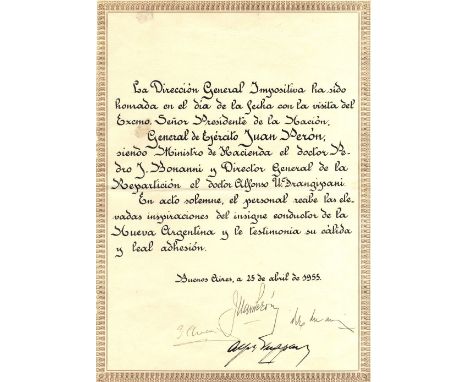 La Dirección General Impositiva ha sido
honrada en el día de la fecha con la visita del
Excmo. Señor Presidente de la Nación,
General de Ejército Juan Perón,
siendo Ministro de Hacienda el doctor Pe-
dro J. Bonanni y Director General de la
Repartición el doctor Alfonso U. Frangipani.
En acto solemne, el personal recibe las ele-
vadas inspiraciones del insigne conductor de la
Nueva Argentina y le testimonia su cálida
y leal adhesión.
Buenos Aires, a 25 de abril de 1955.
Juan Perón